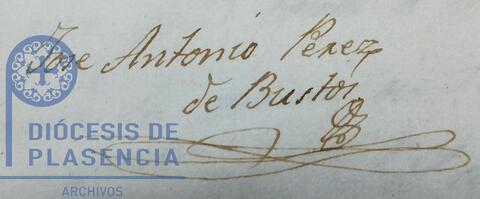 Jose Antonio Perez
de Bustos
DIÓCESIS DE
PLASENCIA
ARCHIVOS